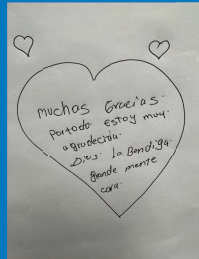 muchas Gracias.
Portodo estoy muy.
agradecida.
Dios. la Bendiga.
grande mente